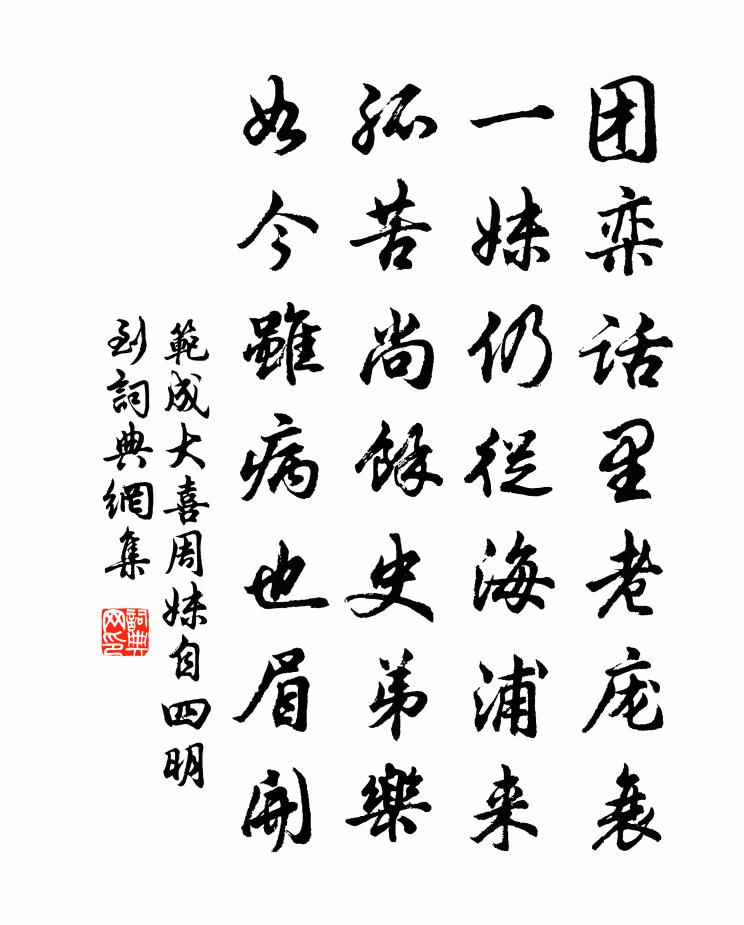 团栾话里老庞衰
一妹仍從海浦来
孤苦尚餘史弟樂
如今雖病也眉開
範成大喜周妹自四明
到詞典網集
詞典
网印